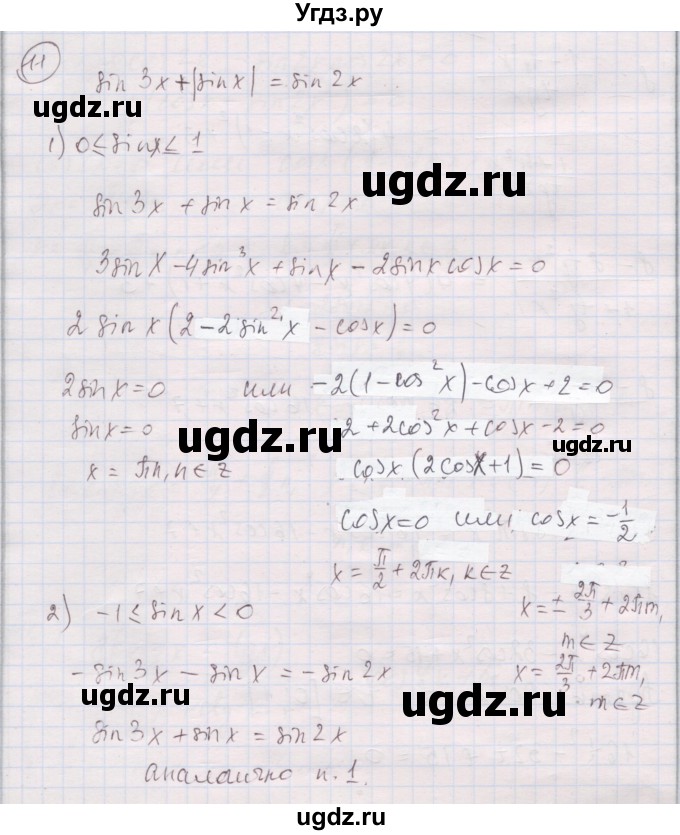 Угдз.ру
11
sin 3x + |sin x| = sin 2x
ugdz.ru
1) 0 ≤ sin x ≤ 1
ugdz.ru
sin 3x + sin x = sin 2x
3 sin x - 4 sin³x + sin x - 2 sin x cos x = 0
2 sin x (2 - 2 sin²x - cos x) = 0
2 sin x = 0 или -2(1 - cos²x) - cos x + 2 = 0
sin x = 0 2 + 2cos²x + cos x - 2 = 0
ugdz.ru
x = πn, n ∈ z cos x (2cos x + 1) = 0
cos x = 0 или cos x = -1/2
x = π/2 + 2πk, k ∈ z
x = ± 2π/3 + 2πm,
m ∈ z
2) -1 ≤ sin x < 0
x = 2π/3 + 2πm,
m ∈ z
- sin 3x - sin x = - sin 2x
ugdz.ru
ugdz.ru
sin 3x + sin x = sin 2x
аналаично п. 1.
ugdz.ru
ugdz.ru